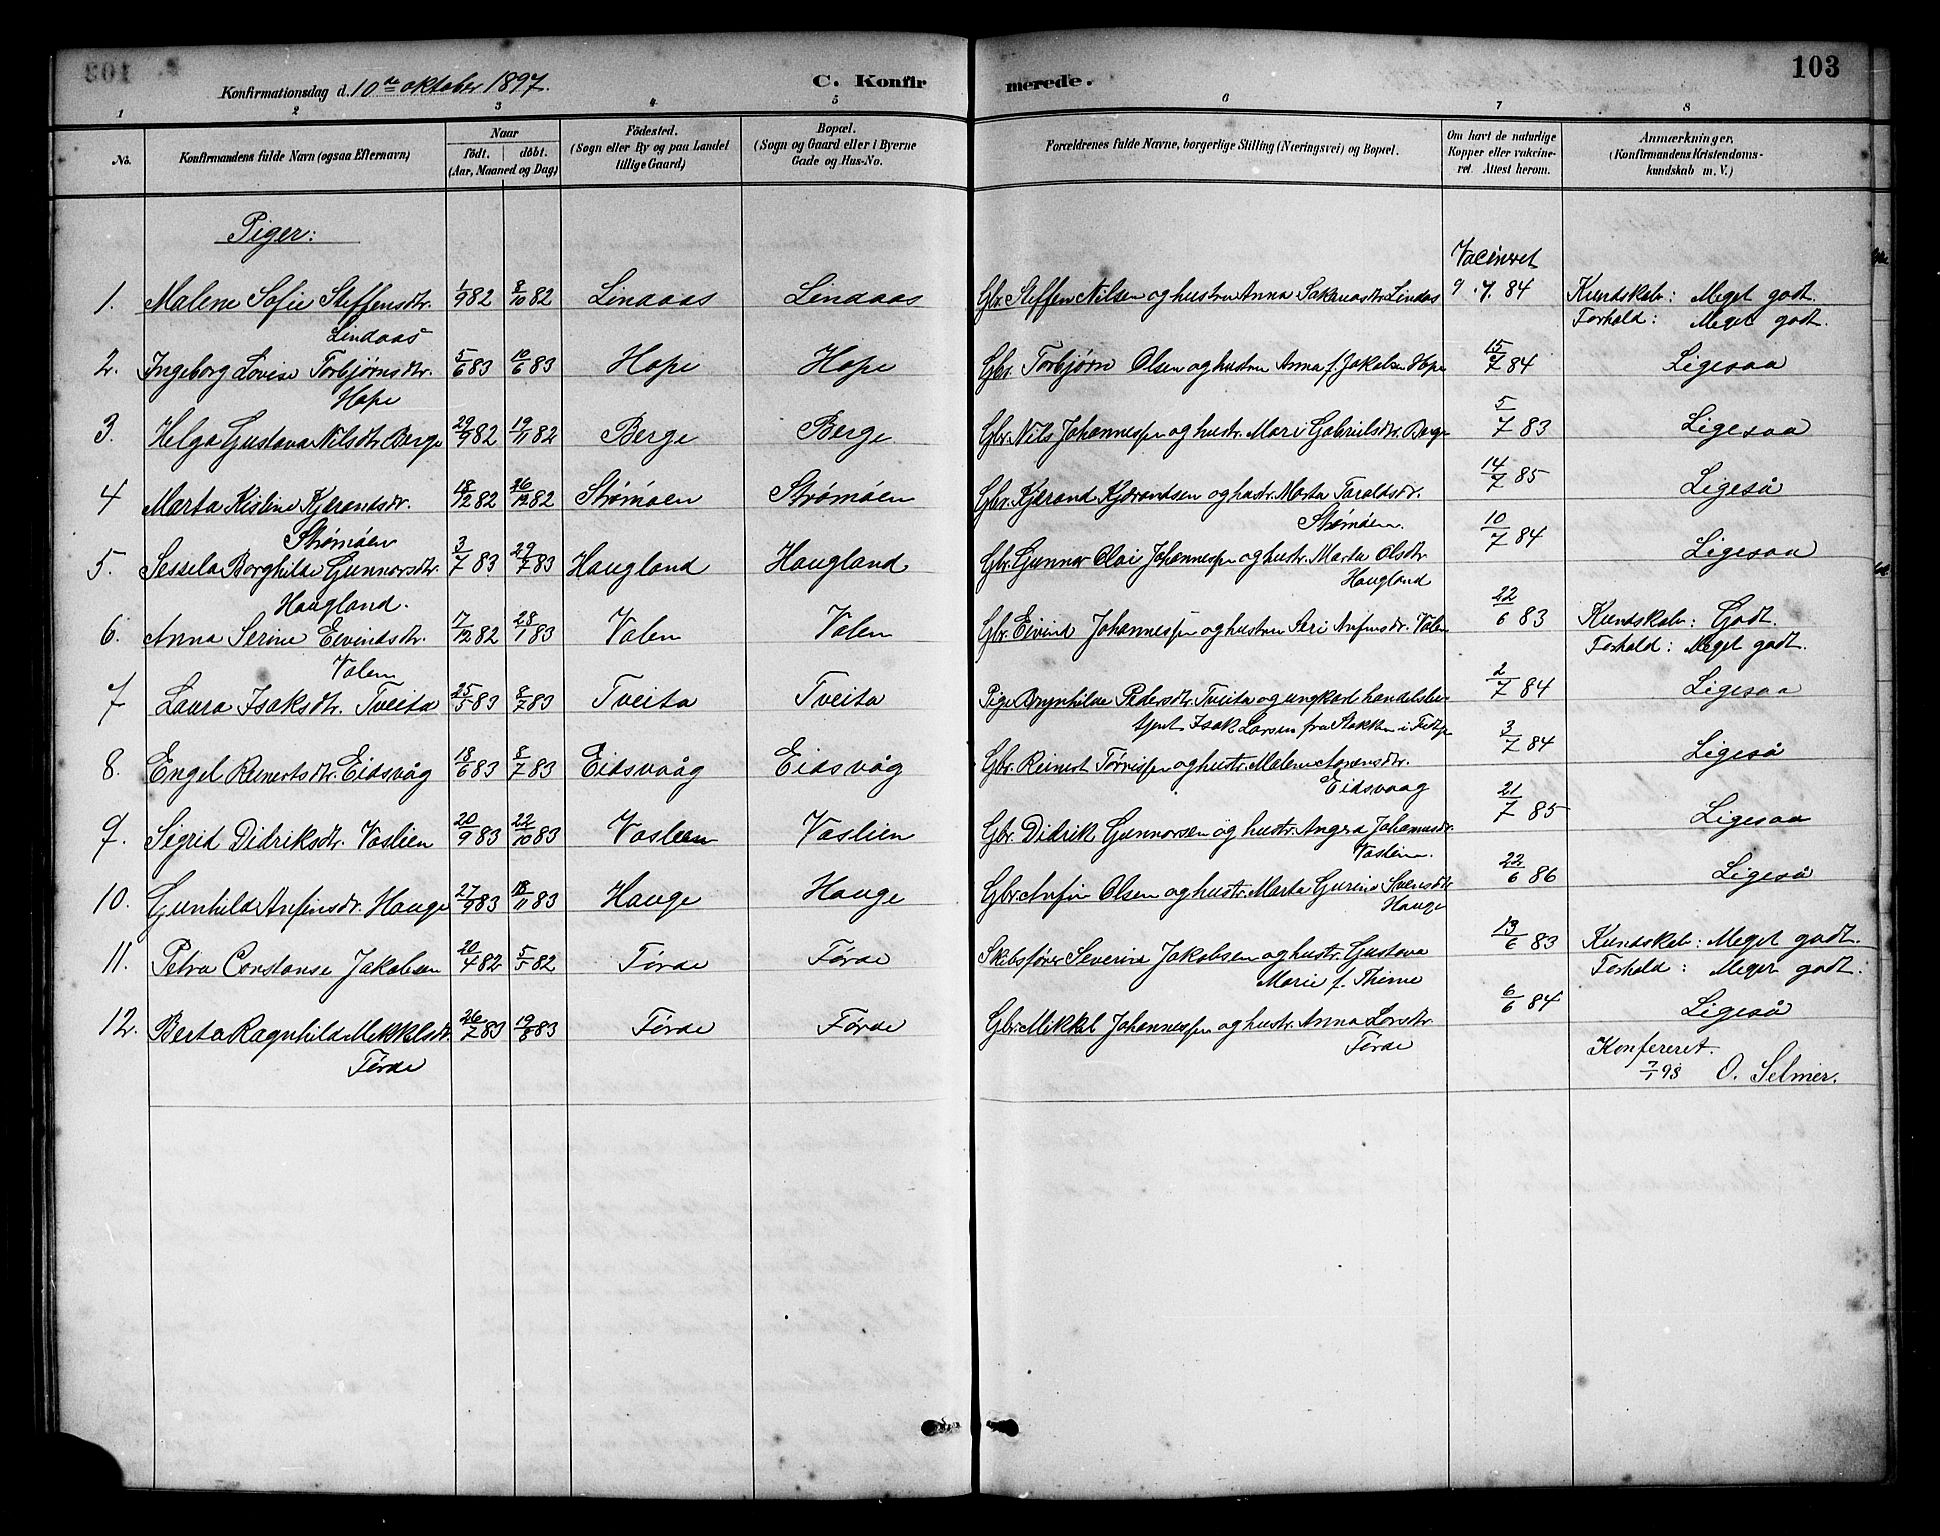 103
Konfirmationsdag d. 10de oktober 1897.
C. Konfirmerede.
1 2 3 4 5 6 7 8
No.
Konfirmandens fulde Navn (ogsaa Efternavn)
Naar
födt. döbt.
(Aar, Maaned og Dag)
Födested.
(Sogn eller By og paa Landet
tillige Gaard)
Bopæl.
(Sogn og Gaard eller i Byerne
Gade og Hus-No.
Forældrenes fulde Navne, borgerlige Stilling (Næringsvei) og Bopæl.
Om havt de naturlige
Kopper eller vakcine-
ret. Attest herom.
Anmærkninger,
(Konfirmandens Kristendoms-
kundskab m. V.)
Piger:
Vacineret
1. Malene Sofie Steffensdtr. 1/9 82 8/10 82 Lindaas Lindaas Gbr. Steffen Nilsen og hustru Anna Lindas 9.7.84 Kundskab: Meget godt.
Lindaas Forhold: Meget godt.
2. Ingeborg Lovise Torbjörnsdtr. 5/6 83 10/6 83 Hope Hope Gbr. Torbjørn Olsen og hustru Anna f. Jakobsen Hope 15/7 84 Ligesaa
Hope
3. Helga Gustava Nilsdtr. Berge 29/9 82 19/11 82 Berge Berge Gbr. Nils Johannessen og hustr. Mari Gabrielsdtr. Berge 5/7 83 Ligesaa
4 Marta Kjerandsdr. 18/12 82 26/12 82 Strømøen Strømöen Gbr. Kjerand Kjerandsen og hustr. Marta Taraldsdr. 14/7 85 Ligeså
Strømöen Strømöen.
5. Sessela Borghilde Gunnarsdtr. 3/7 83 29/7 83 Haugland Haugland Gbr. Gunnar Olai Johannessen og hustr. Marta Olsdtr 10/7 84 Ligesaa
Haugland. Haugland
6. Anna Serine Eivindsdtr. 7/12 82 28/1 83 Valen Valen Gbr. Eivind Johannessen og hustru Seri Anfinsdr. Valen 22/6 83 Kundskab: Godt.
Valen Forhold: Meget godt.
7 Laura Isaksdtr. Tveita 25/5 83 8/7 83 Tveita Tveita Pige Brynhilde Pedersdtr. Tveita og ungkarl handelsbe- 2/7 84 Ligesaa
tjent Isak Larsen fra Stokken i
8. Engel Reinertsdtr. Eidsvåg 18/6 83 8/7 83 Eidsvaåg Eidsvåg Gbr. Reinert og hustr. Malene 3/7 84 Ligeså
Eidsvaag
9. Sigrid Didriksdtr. Vaslien 20/9 83 22/10 83 Vaslien Vaslien Gbr. Didrik Gunnarsen og hustr. Angra 21/7 85 Ligesaa
Vaslien.
10. Gunhild Anfinsdr. Hauge 27/9 83 18/11 83 Hauge Hauge Gbr. Anfin Olsen og hustr. Marta Gurine Svensdtr 22/6 86 Ligeså
Hauge
11. Petra Constanse Jakobsen 20/4 82 5/5 82 Førde Førde Skibsfører Severin Jakobsen og hustr. Gustava 13/6 83 Kundskab: Meget godt.
Marie f. Thime Forhold: Meget godt.
12. Berta Ragnhilda Mikkelsdr. 26/7 83 19/8 83 Førde Førde Gbr. Mikkel Johannessen og hustr. Anna Larsdtr 6/6 84 Ligeså
Førde Førde
Konfereret.
7/1 98 O. Selmer.